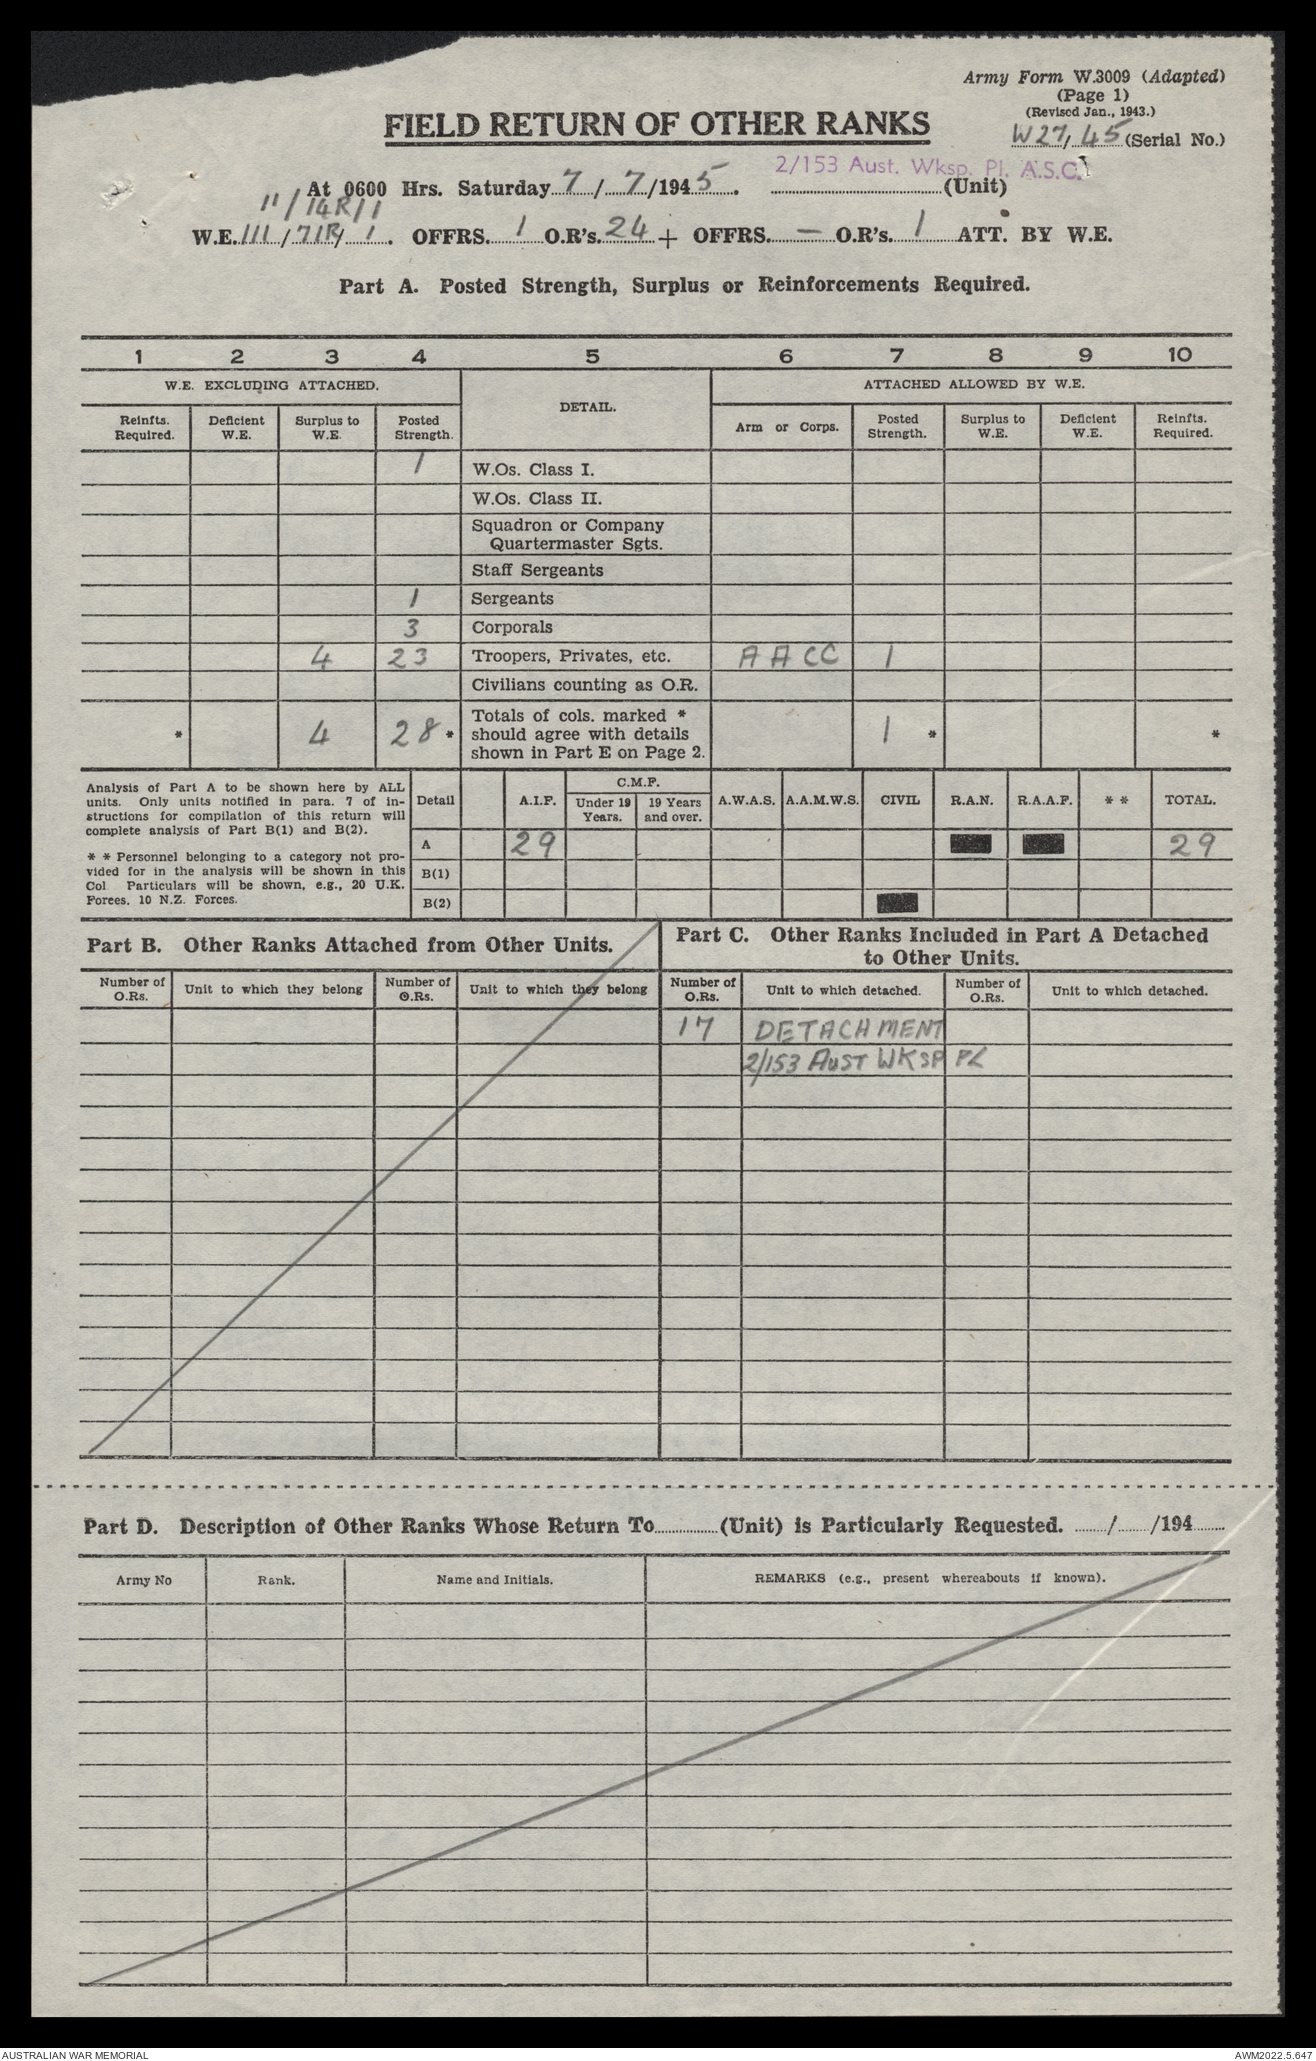 Army Form W.3009 (Adapted)
(Page 1)
(Revised Jan., 1943.)
FIELD RETURN OF OTHER RANKS
W27/45 (Serial No.)
2/153 Aust. Wksp. Pl. A.S.C.
At 0600 Hrs. Saturday 7/7/1945. (Unit)
11/14R/1
W.E. 111/71R/1. OFFRS. 1 O.R's. 24 + OFFRS. — O.R's. 1 ATT. BY W.E.
Part A. Posted Strength, Surplus or Reinforcements Required.
1 2 3 4 5 6 7 8 9 10
W.E. EXCLUDING ATTACHED. DETAIL. ATTACHED ALLOWED BY W.E.
Reinfts. Required. Deficient W.E. Surplus to W.E. Posted Strength. Arm or Corps. Posted Strength. Surplus to W.E. Deficient W.E. Reinfts. Required.
1 W.Os. Class I.
W.Os. Class II.
Squadron or Company
Quartermaster Sgts.
Staff Sergeants
1 Sergeants
3 Corporals
4 23 Troopers, Privates, etc. AACC 1
Civilians counting as O.R.
Totals of cols. marked *
* 4 28 * should agree with details 1 * *
shown in Part E on Page 2.
Analysis of Part A to be shown here by ALL
units. Only units notified in para. 7 of in-
structions for compilation of this return will
complete analysis of Part B(1) and B(2).
* * Personnel belonging to a category not pro-
vided for in the analysis will be shown in this
Col Particulars will be shown, e.g., 20 U.K.
Forces, 10 N.Z. Forces.
Detail A.I.F. C.M.F. Under 19 Years. 19 Years and over. A.W.A.S. A.A.M.W.S. CIVIL R.A.N. R.A.A.F. * * TOTAL.
A 29 29
B(1)
B(2)
Part B. Other Ranks Attached from Other Units.
Part C. Other Ranks Included in Part A Detached
to Other Units.
Number of O.Rs. Unit to which they belong Number of O.Rs. Unit to which they belong Number of O.Rs. Unit to which detached. Number of O.Rs. Unit to which detached.
17 DETACHMENT
2/153 AUST WKSP PL
Part D. Description of Other Ranks Whose Return To (Unit) is Particularly Requested. / /194
Army No Rank. Name and Initials. REMARKS (e.g., present whereabouts if known).
AUSTRALIAN WAR MEMORIAL AWM2022.5.647